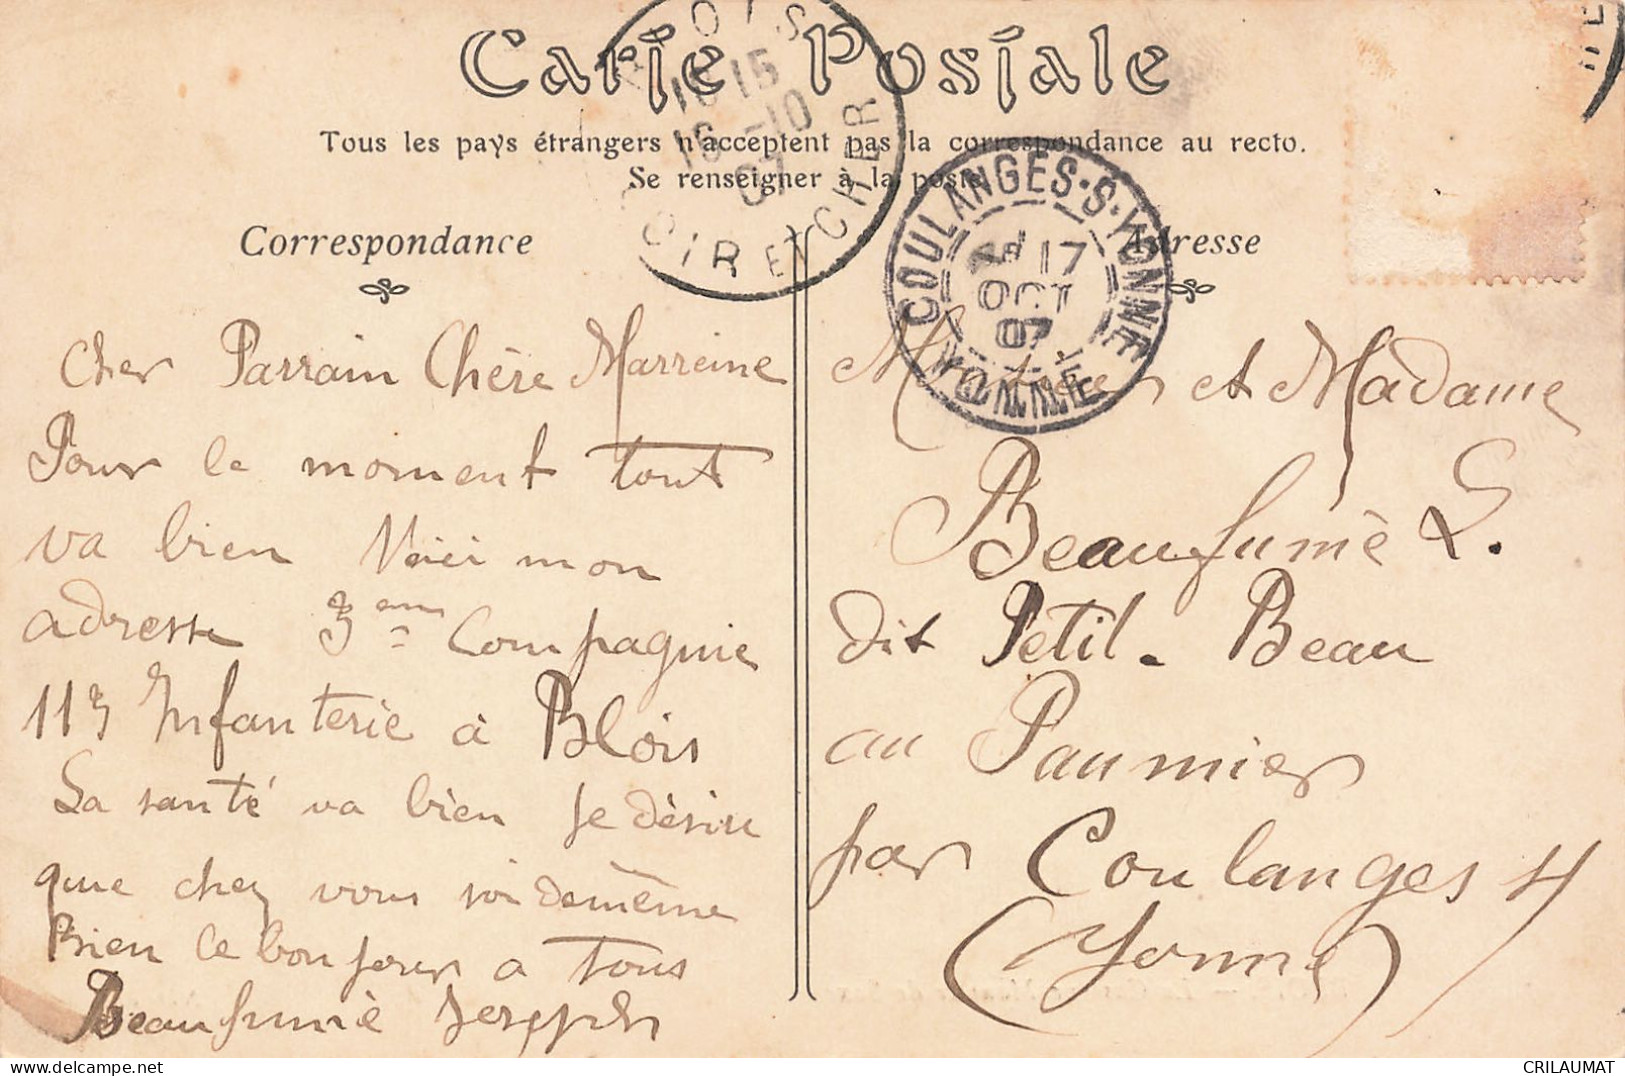 Carte Postale
Tous les pays étrangers n'acceptent pas la correspondance au recto.
Se renseigner à la poste
Correspondance
Adresse
BLOIS
15
16 -10
07
LOIR ET CHER
COULANGES-S-YONNE
17
OCT
07
YONNE
Cher Parrain Chère Marreine
Pour le moment tout
va bien Voici mon
adresse 3eme Compagnie
113 Infanterie à Blois
La santé va bien je désire
que chez vous soi demême
Bien le bonjour a tous
Beaufumé Joseph
Monsieur et Madame
Beaufumé L.
dit Petit-Beau
au Paumier
par Coulanges s/
(Yonne)
CRILAUMAT